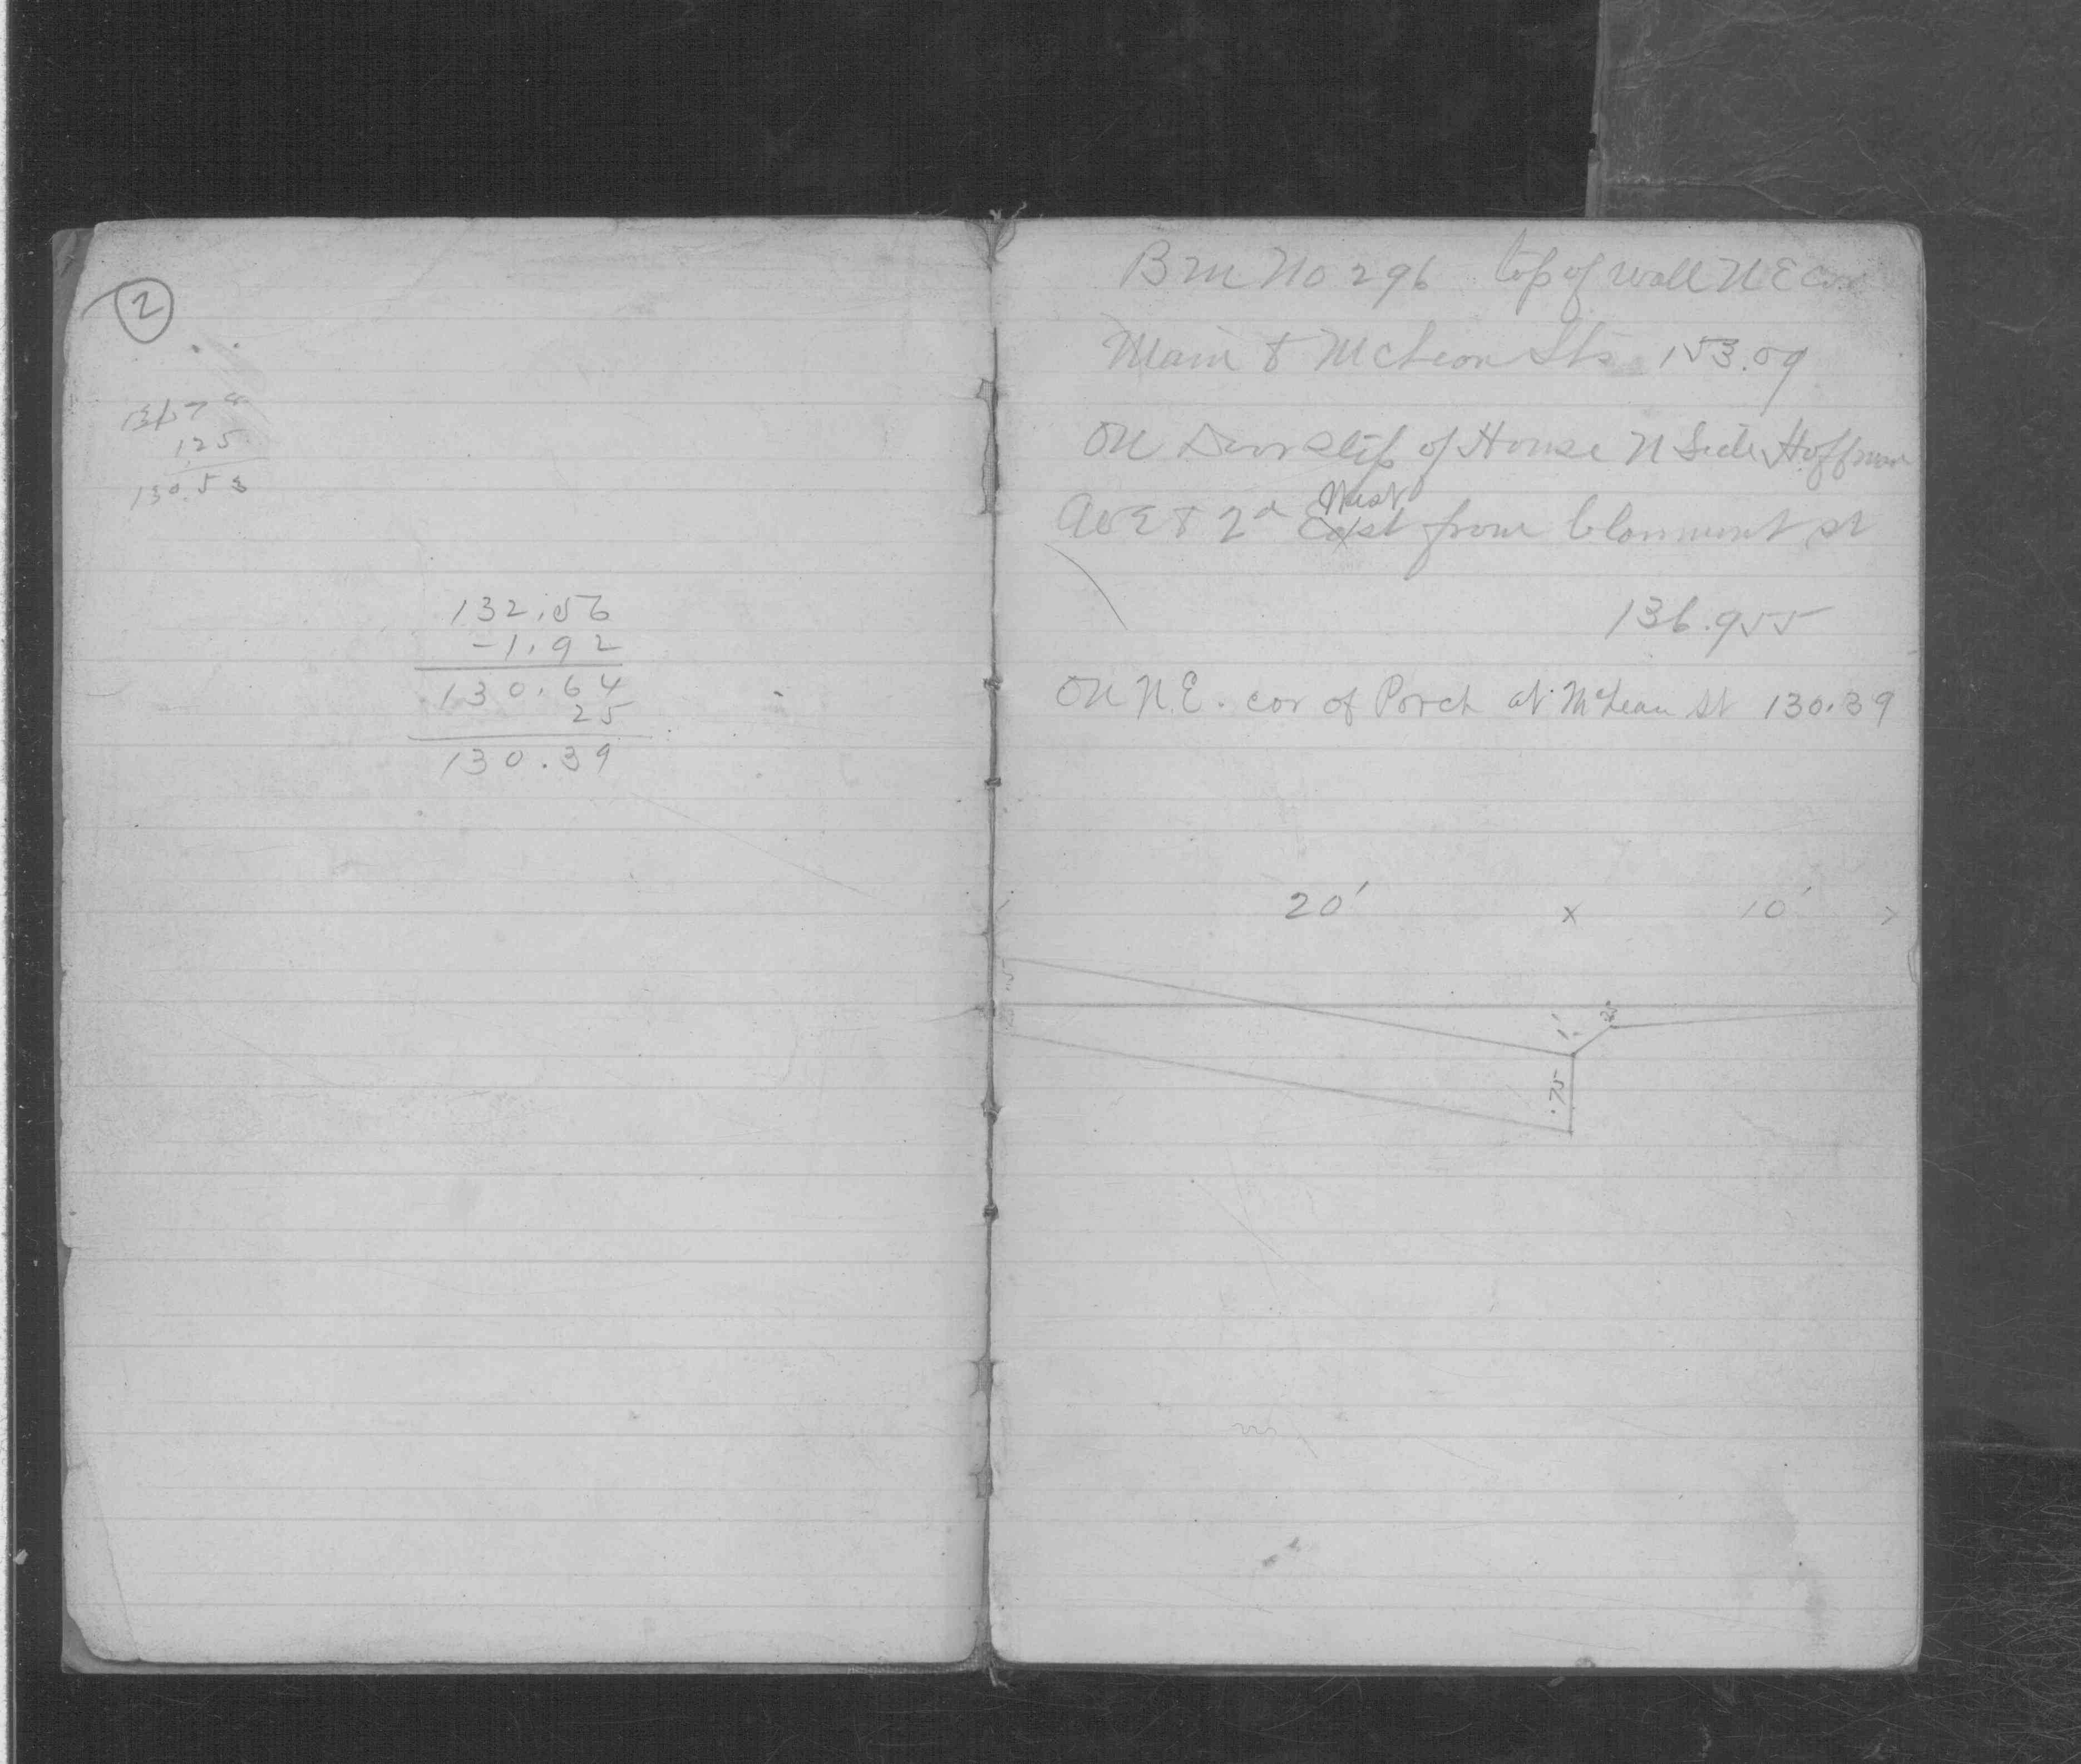 2
125
130.53
132.56
-1.92
130.64
25
130.39
B M No 296 top of wall N E Cor
Main & McLean Sts 153.09
On Door Step of House N Side Hoffman
West
Ave & 2d East from Clarmont st
136.955
On N.E. cor of Porch at McLean St 130.39
20' x 10'
1'
.25
.75